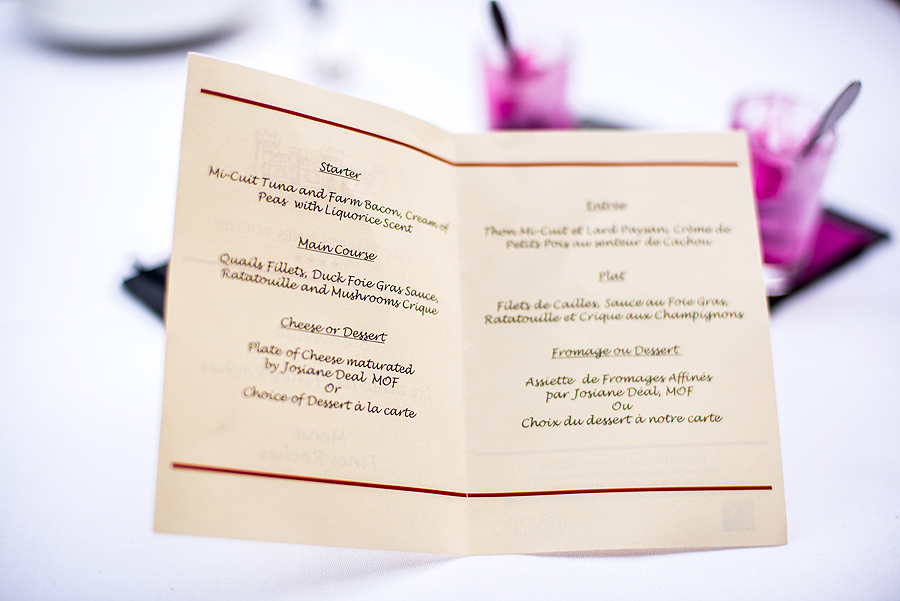 Starter
Mi-Cuit Tuna and Farm Bacon, Cream of
Peas with Liquorice Scent
Main Course
Quails Fillets, Duck Foie Gras Sauce,
Ratatouille and Mushrooms Crique
Cheese or Dessert
Plate of Cheese maturated
by Josiane Deal MOF
Or
Choice of Dessert à la carte
Entrée
Thon Mi-Cuit et Lard Paysan, Crème de
Petits Pois au senteur de Cachou
Plat
Filets de Cailles, Sauce au Foie Gras,
Ratatouille et Crique aux Champignons
Fromage ou Dessert
Assiette de Fromages Affinés
par Josiane Déal, MOF
Ou
Choix du dessert à notre carte
Menu
Tines Roches